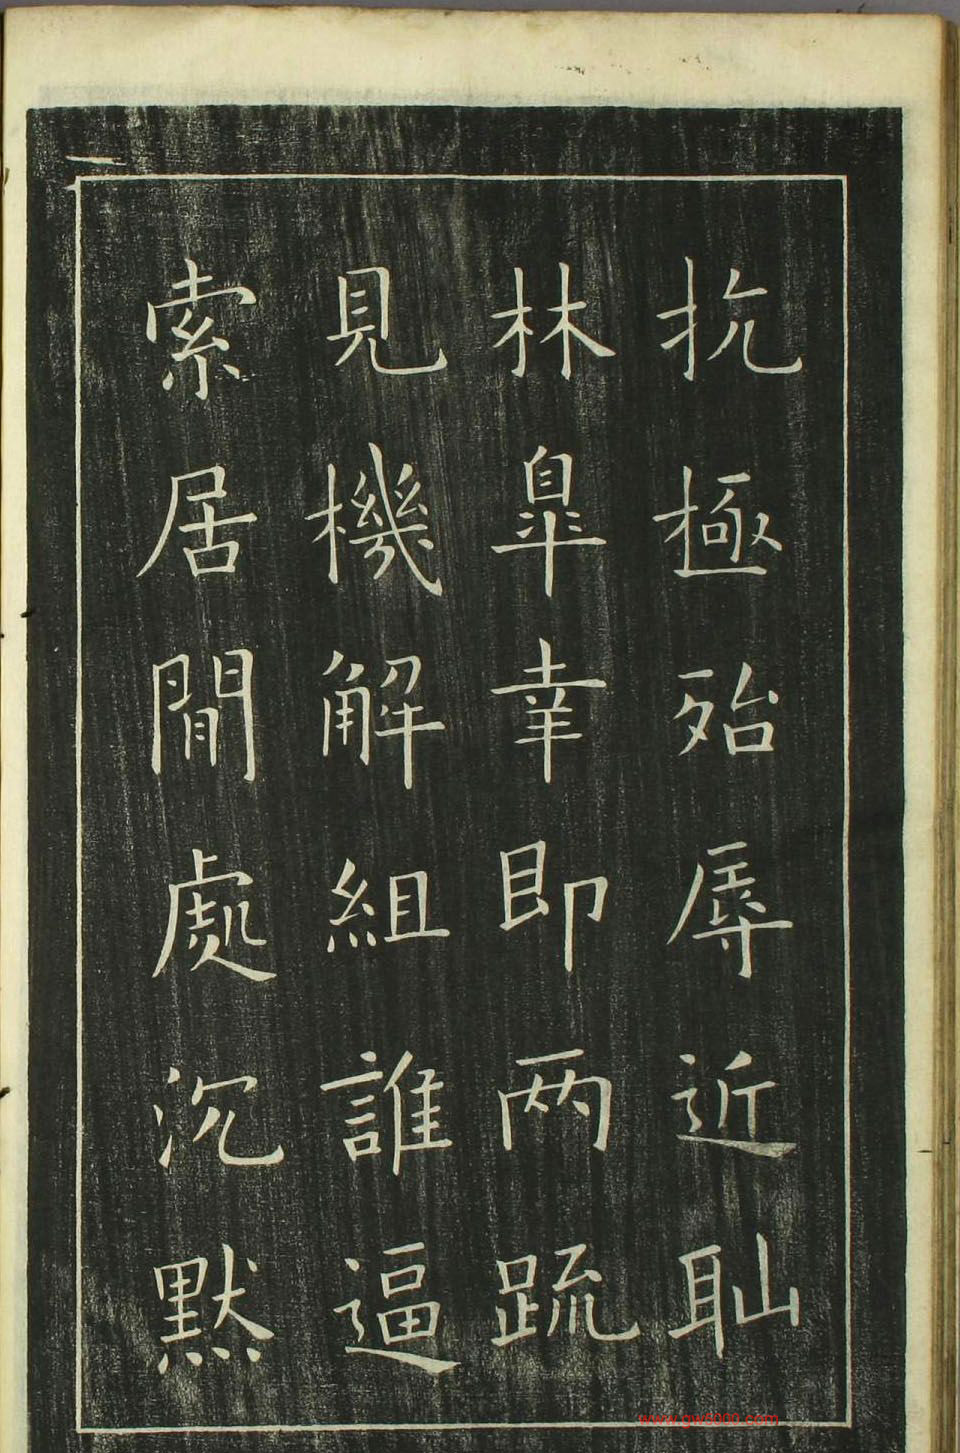 抗極殆辱近耻
林皐幸即两疏
見機解組誰逼
索居閒處沉默
www.gw5000.com